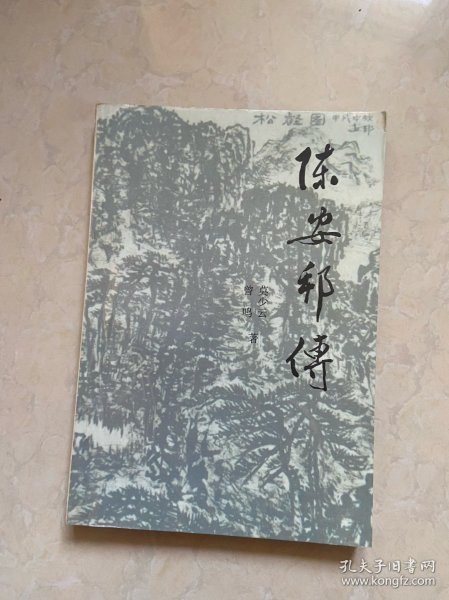 松壑图
陈安邦傳
莫少云
曾鸣 著
孔夫子旧书网
www.kongfz.com